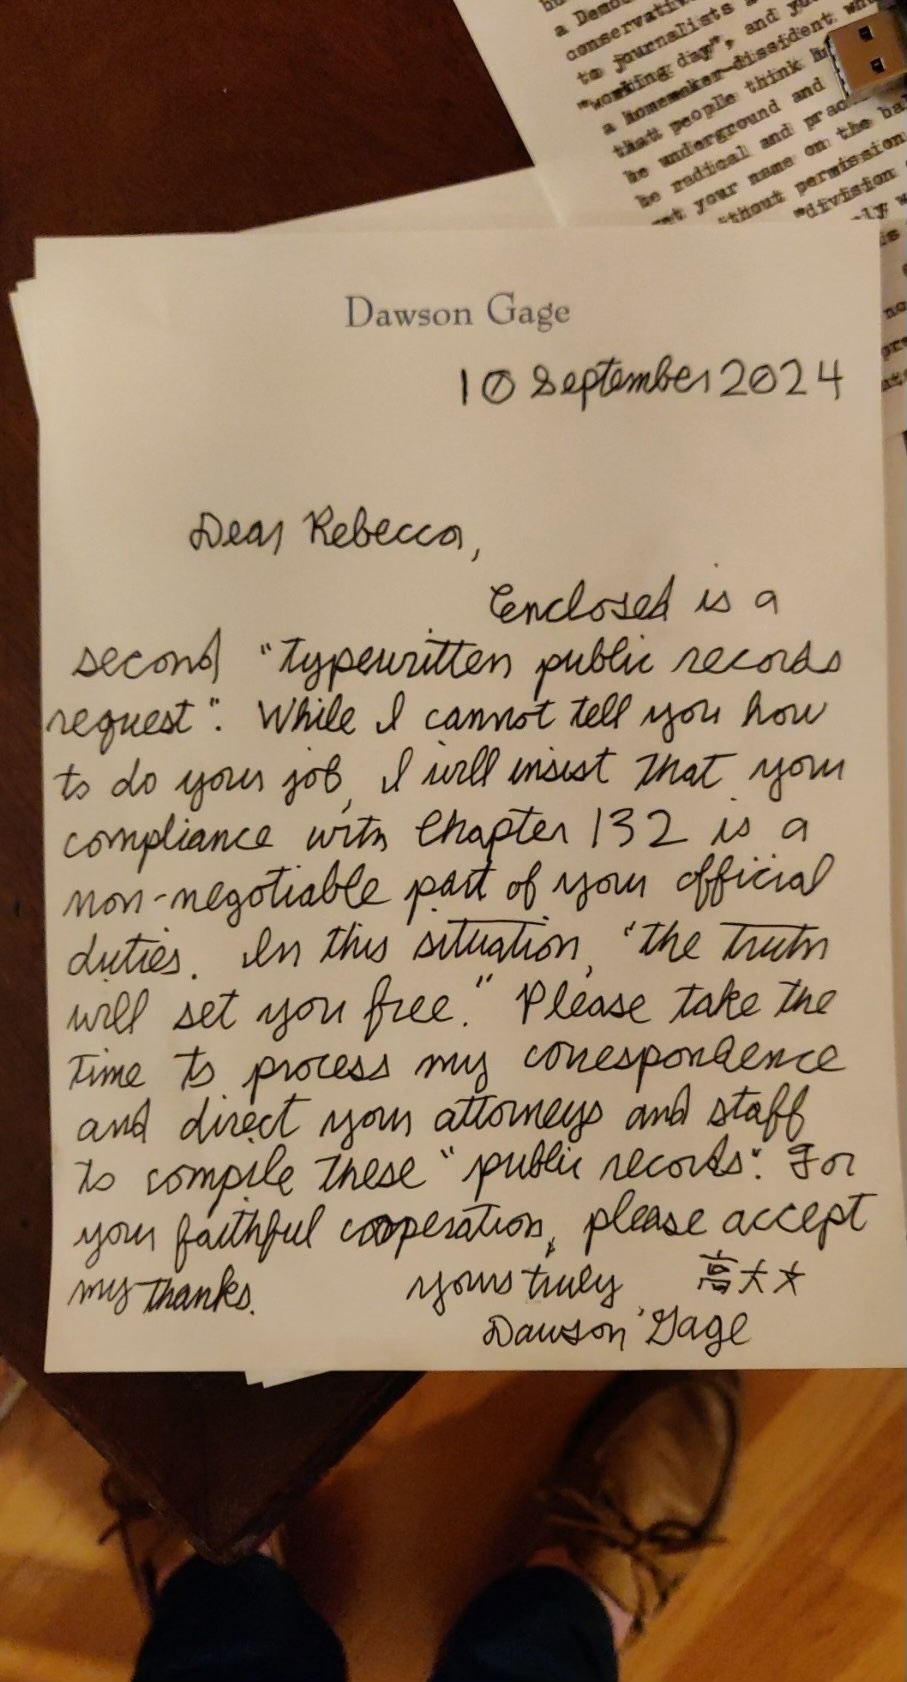 a Democ
conservativ
to journalists
"working day", and yo
a homemaker-dissident wh
that people think h
be underground and
be radical and prac
et your name on the bal
thout permission
"division
ly w
is
no
pre
ate
Dawson Gage
10 September 2024
Dear Rebecca,
Enclosed is a
second "typewritten public records
request". While I cannot tell you how
to do your job, I will insist that your
compliance with Chapter 132 is a
non-negotiable part of your official
duties. In this situation, "the truth
will set you free." Please take the
time to process my correspondence
and direct your attorneys and staff
to compile these "public records". For
your faithful cooperation, please accept
my thanks. yours truly 高大文
Dawson Gage